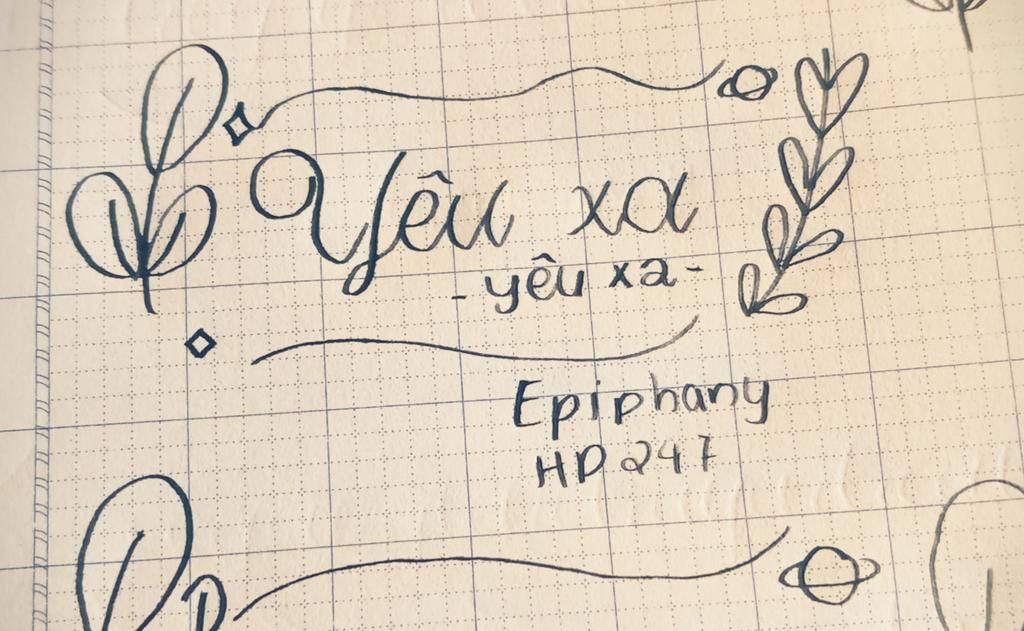 Yêu xa
- yêu xa -
Epiphany
HD 247